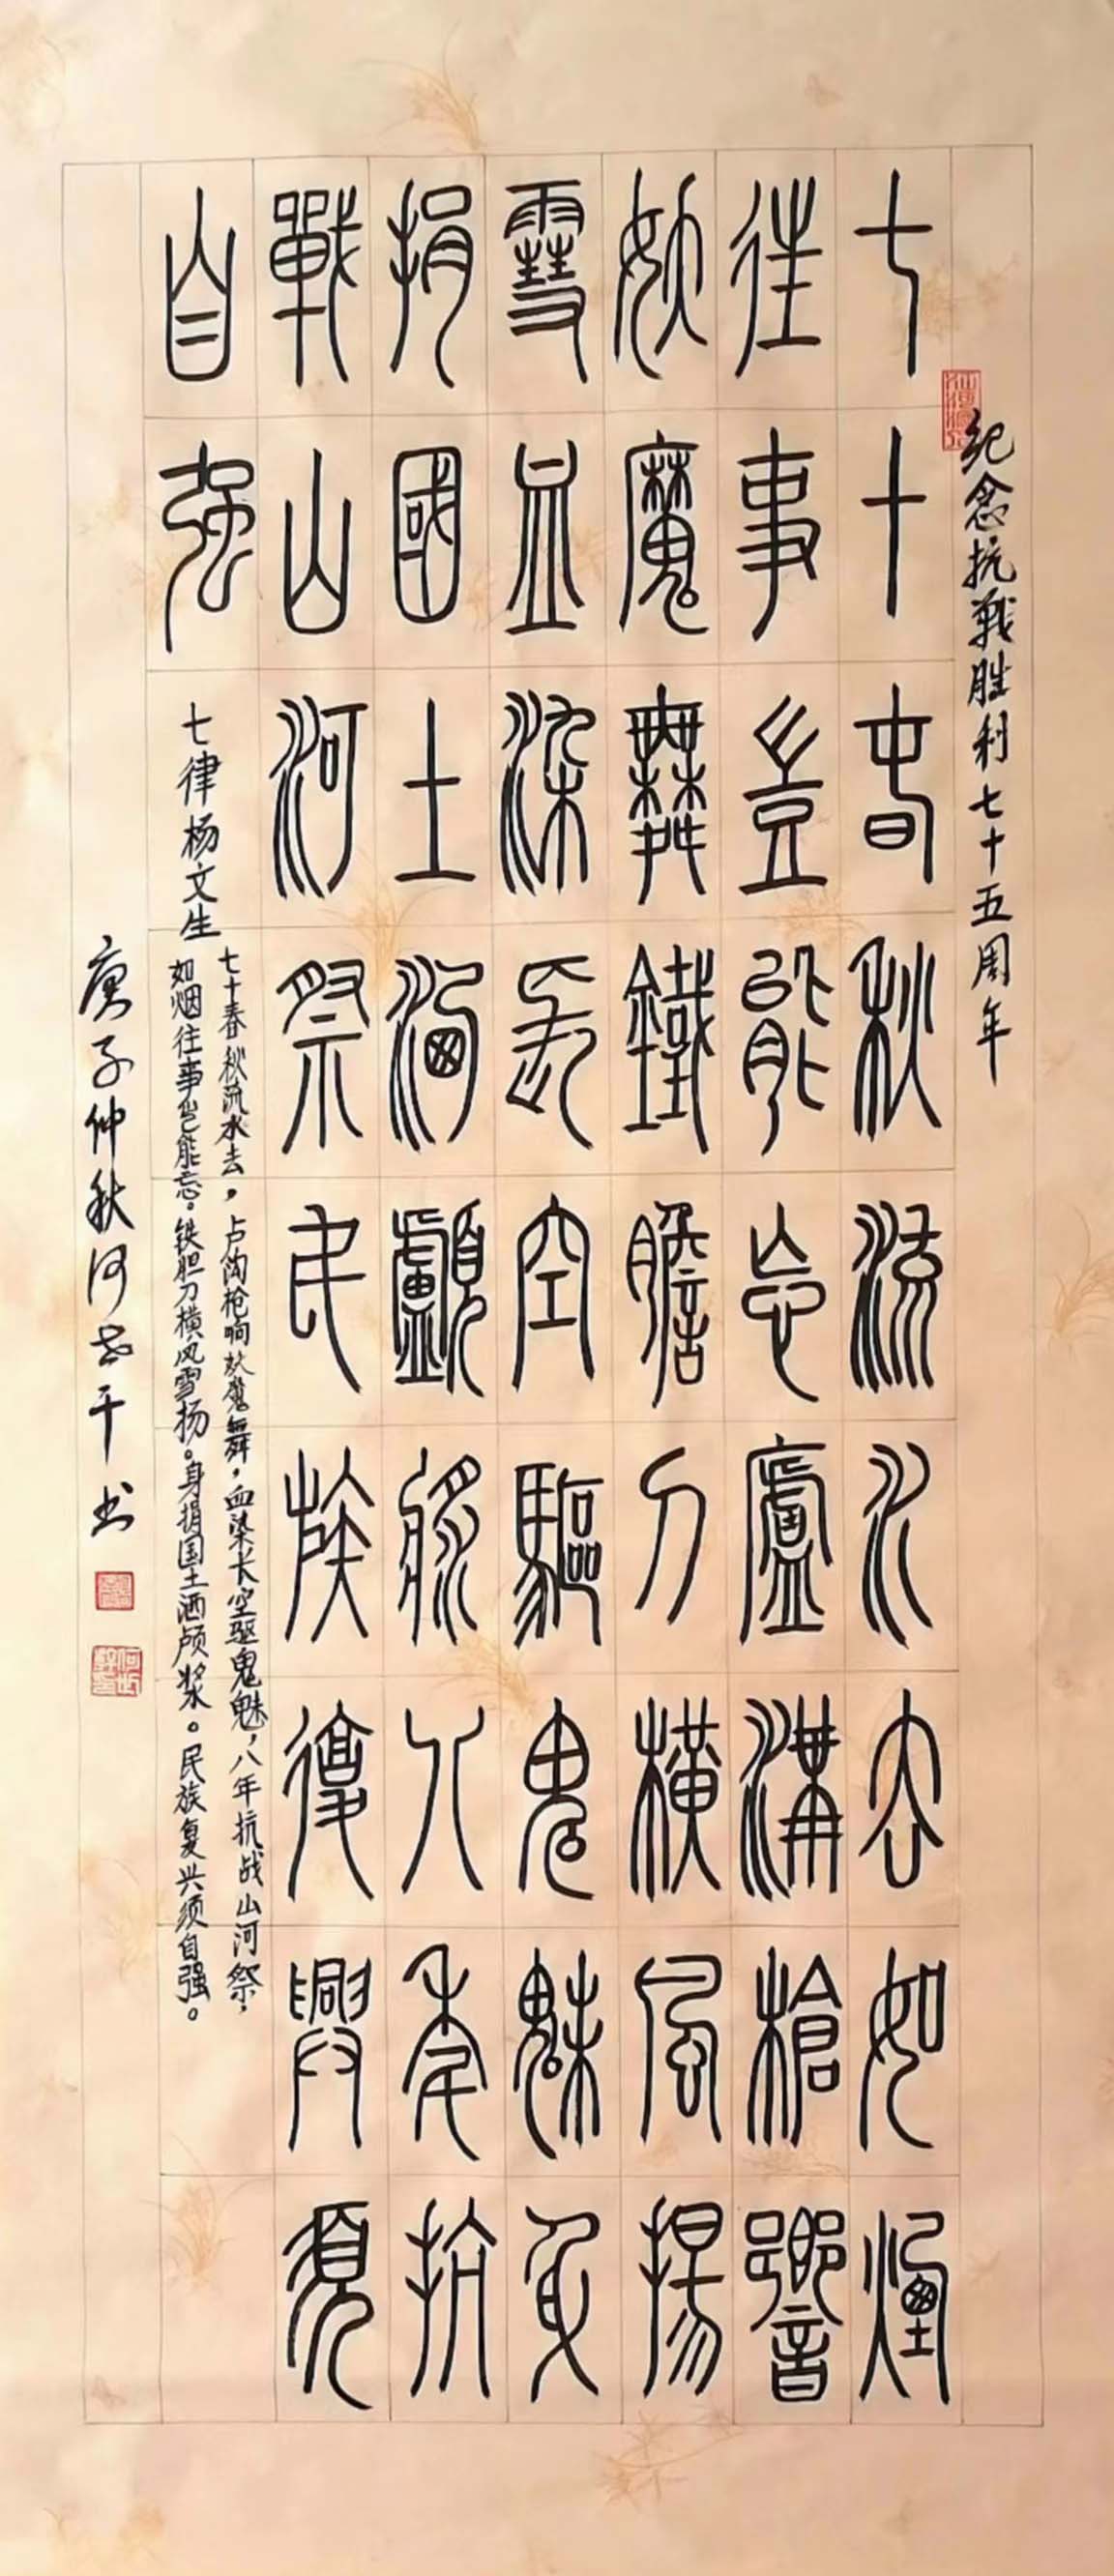 纪念抗战胜利七十五周年
七十春秋流水去如煙
往事豈能忘盧溝槍響
妖魔舞鐵膽刀橫風揚
雪血染長空驅鬼魅身
捐國土灑顱漿八年抗
戰山河祭民族復興須
自強
七律杨文生
七十春秋流水去，卢沟枪响妖魔舞，血染长空驱鬼魅，八年抗战山河祭，
如烟往事岂能忘。铁胆刀横风雪扬。身捐国土洒颅浆。民族复兴须自强。
庚子仲秋何世干书